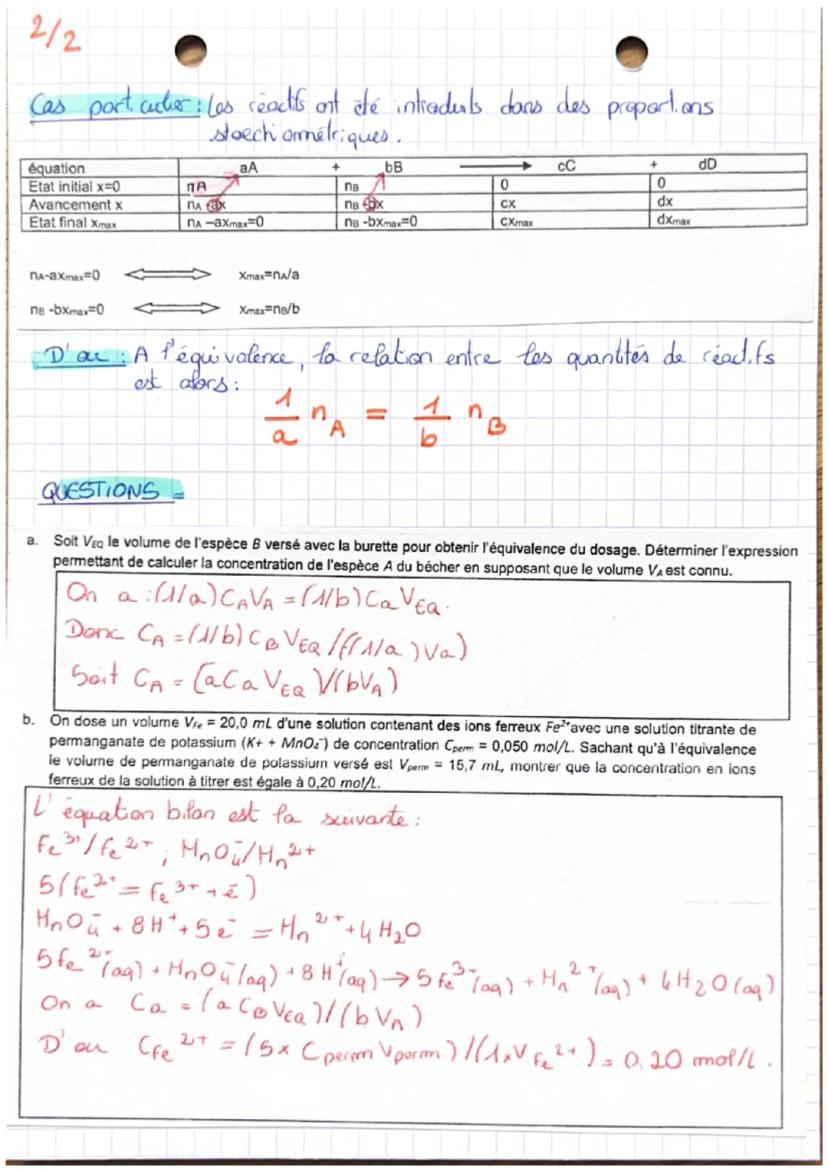 2/2
Cas particulier : Les réactifs ont été introduits dans des proportions
stoechiométriques.
équation aA + bB → cC + dD
Etat initial x=0 nA nB 0 0
Avancement x nA -ax nB -bx cx dx
Etat final xmax nA –axmax=0 nB -bxmax=0 cxmax dxmax
nA-axmax=0 ⟺ xmax=nA/a
nB -bxmax=0 ⟺ xmax=nB/b
D'où : A l'équivalence, la relation entre les quantités de réactifs
est alors :
1/a nA = 1/b nB
QUESTIONS =
a. Soit VEQ le volume de l'espèce B versé avec la burette pour obtenir l'équivalence du dosage. Déterminer l'expression
permettant de calculer la concentration de l'espèce A du bécher en supposant que le volume VA est connu.
On a : (1/a) CAVA = (1/b) CaVEQ.
Donc CA = (1/b) CB VEQ /((1/a) Va)
Soit CA = (aCa VEQ)/(bVA)
b. On dose un volume VFe = 20,0 mL d'une solution contenant des ions ferreux Fe²⁺avec une solution titrante de
permanganate de potassium (K+ + MnO₄⁻) de concentration Cperm = 0,050 mol/L. Sachant qu'à l'équivalence
le volume de permanganate de potassium versé est Vperm = 15,7 mL, montrer que la concentration en ions
ferreux de la solution à titrer est égale à 0,20 mol/L.
L'équation bilan est la suivante :
Fe³⁺/Fe²⁺ ; MnO₄⁻/Mn²⁺
5(Fe²⁺ = Fe³⁺ + e⁻)
MnO₄⁻ + 8H⁺ + 5e⁻ = Mn²⁺ + 4H₂O
5Fe²⁺(aq) + MnO₄⁻(aq) + 8H⁺(aq) → 5Fe³⁺(aq) + Mn²⁺(aq) + 4H₂O(aq)
On a Ca = (a CB VEQ)/(b VA)
D'où CFe²⁺ = (5x Cperm Vperm)/(1xVFe²⁺) = 0,20 mol/L.